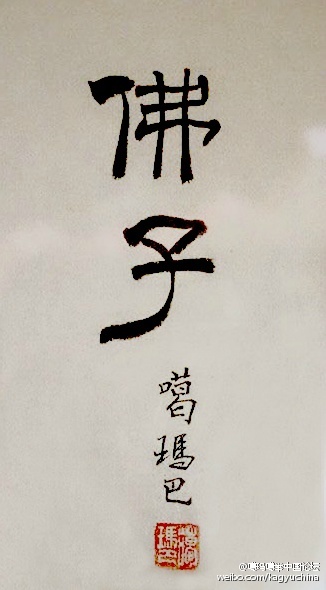 佛子
噶瑪巴
weibo.com/kagyuchina